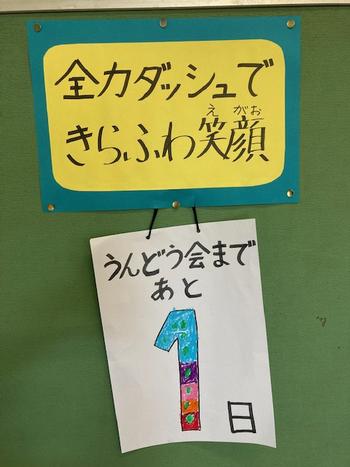 全力ダッシュで
きらふわ笑顔
えがお
うんどう会まで
あと
1
日